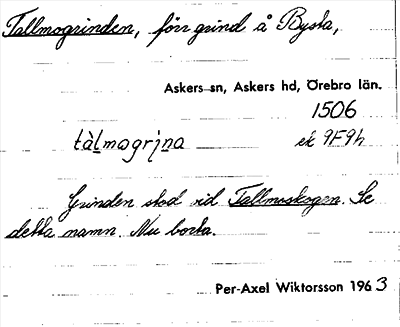 Tallmogrinden, förr grind å Bysta,
Askers sn, Askers hd, Örebro län.
1506
tàlmogri̥na ek 9F9h
Grinden stod vid Tallmoskogen. Se
detta namn. Nu borta.
Per-Axel Wiktorsson 1963